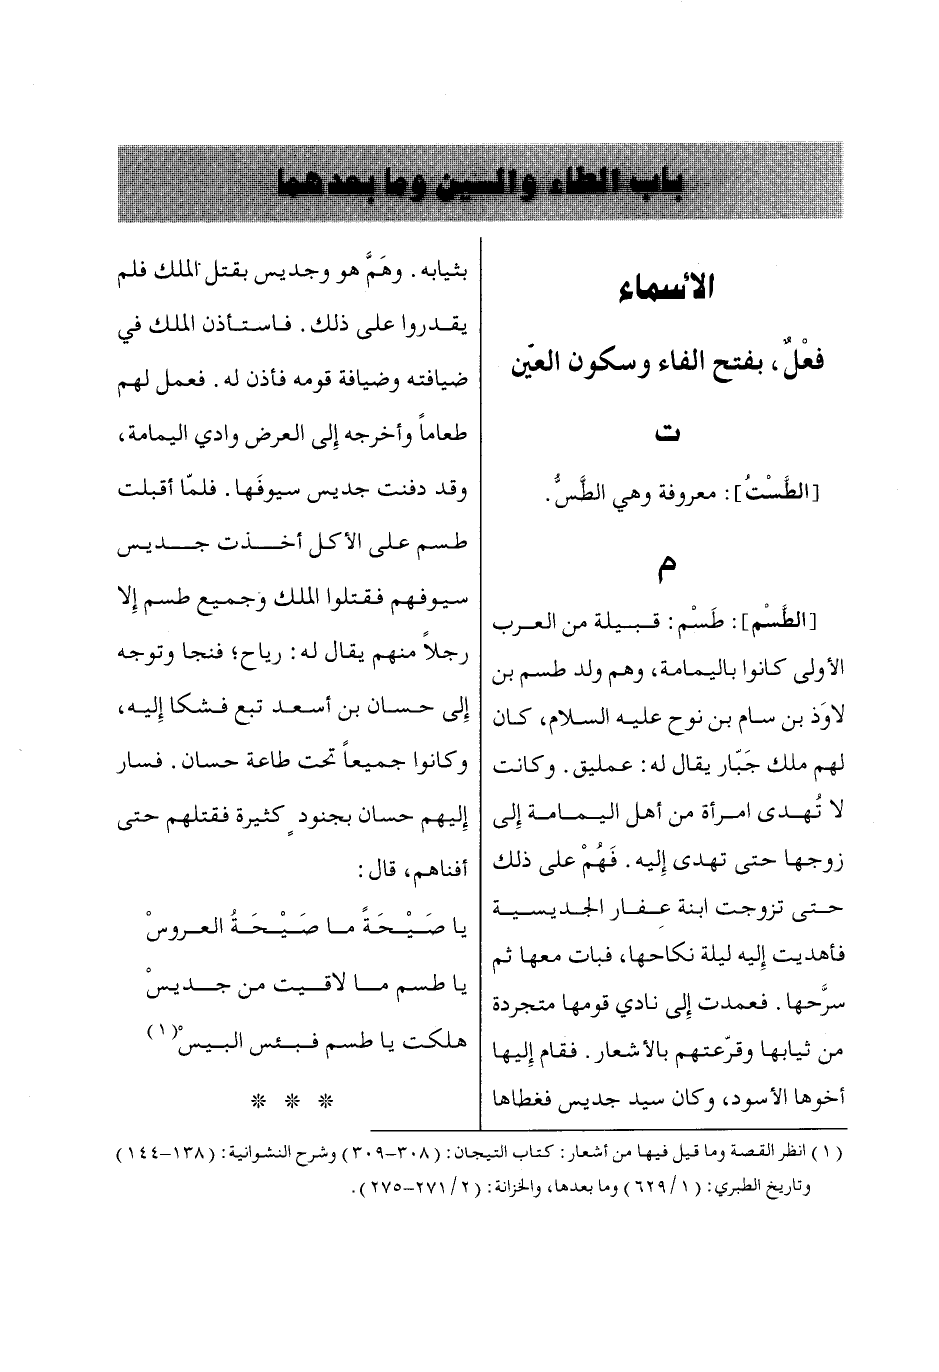 باب الطاء والسين وما بعدهما
الأسماء
فعْلٌ، بفتح الفاء وسكون العيْن
ت
[الطَّسْتُ]: معروفة وهي الطَّسُّ.
م
[الطَّسْم]: طَسْم: قبيلة من العرب
الأولى كانوا باليمامة، وهم ولد طسم بن
لاوَذ بن سام بن نوح عليه السلام، كان
لهم ملك جَبّار يقال له: عمليق. وكانت
لا تُهدى امرأة من أهل اليمامة إلى
زوجها حتى تهدى إليه. فَهُمْ على ذلك
حتى تزوجت ابنة عفار الجديسية
فأهديت إليه ليلة نكاحها، فبات معها ثم
سرَّحها. فعمدت إلى نادي قومها متجردة
من ثيابها وقرّعتهم بالأشعار. فقام إليها
أخوها الأسود، وكان سيد جديس فغطاها
بثيابه. وهَمَّ هو وجديس بقتل الملك فلم
يقدروا على ذلك. فاستأذن الملك في
ضيافته وضيافة قومه فأذن له. فعمل لهم
طعاماً وأخرجه إلى العرض وادي اليمامة،
وقد دفنت جديس سيوفَها. فلمّا أقبلت
طسم على الأكل أخذت جديس
سيوفهم فقتلوا الملك وجميع طسم إلا
رجلاً منهم يقال له: رياح؛ فنجا وتوجه
إلى حسان بن أسعد تبع فشكا إليه،
وكانوا جميعاً تحت طاعة حسان. فسار
إليهم حسان بجنودٍ كثيرة فقتلهم حتى
أفناهم، قال:
يا صَيْحَةً ما صَيْحَةُ العروسْ
يا طسم ما لاقيت من جديسْ
هلكت يا طسم فبئس البيسْ(١)
* * *
(١) انظر القصة وما قيل فيها من أشعار: كتاب التيجان: (٣٠٨-٣٠٩) وشرح النشوانية: (١٣٨-١٤٤)
وتاريخ الطبري: (١/ ٦٢٩) وما بعدها، والخزانة: (٢/ ٢٧١-٢٧٥).